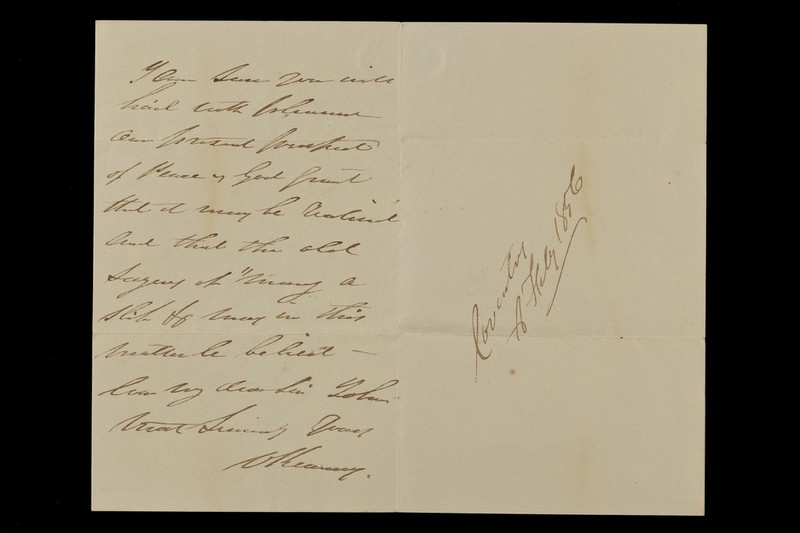 I am sure you will
hail with pleasure
our present prospect
of Peace & God grant
that it may be realised
and that the old
saying of "many a
slip &c may in this
matter be belied —
ever my dear Sir
most Sincerely Yours
Coventry
8 Feby 1856